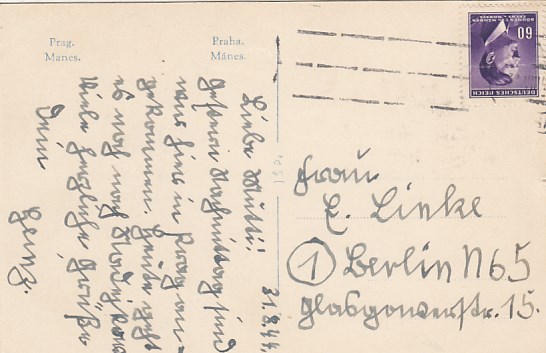 Prag.
Manes.
Praha.
Mánes.
31.8.44.
Liebe Mutti!
Gestern Nachmittag sind
wir hier in Prag an-
gekommen. Heute geht
es noch nach
Viele herzliche Grüße
Dein
Heinz.
Frau
E. Linke
1 Berlin N65
Glasgowerstr. 15.
60
DEUTSCHES REICH
BÖHMEN U. MÄHREN
ČECHY A MORAVA